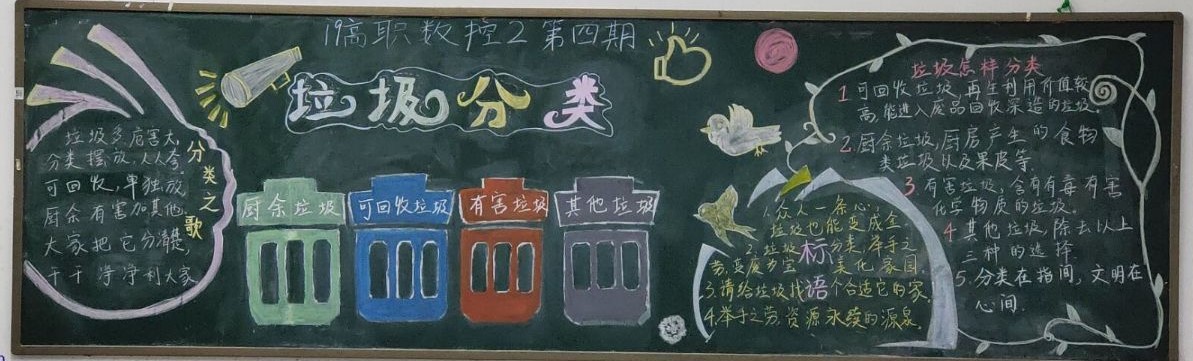 19高职数控2第四期
垃圾分类
分类之歌
垃圾多,危害大,
分类摆放,人人夸.
可回收,单独放
厨余有害加其他,
大家把它分清楚,
干干净净利大家
厨余垃圾
可回收垃圾
有害垃圾
其他垃圾
标语
1.众人一条心,
垃圾也能变成金
2.垃圾分类,举手之
劳,变废为宝,美化家园,
3.请给垃圾找个合适它的家,
4.举手之劳,资源永续的源泉,
垃圾怎样分类
1 可回收垃圾,再生利用价值较
高,能进入废品回收渠道的垃圾.
2.厨余垃圾,厨房产生的食物
类垃圾以及果皮等.
3 有害垃圾,含有有毒有害
化学物质的垃圾.
4 其他垃圾,除去以上
三种的选择
5.分类在指间,文明在
心间.